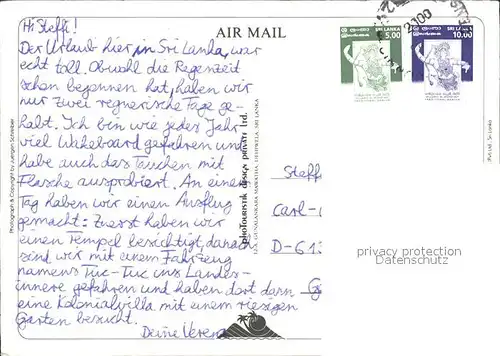 Hi Steffi!
Der Urlaub hier in Sri Lanka war
echt toll. Obwohl die Regenzeit
schon begonnen hat, haben wir
nur zwei regnerische Tage ge-
habt. Ich bin wie jedes Jahr
viel Wakeboard gefahren und
habe auch das Tauchen mit
Flasche ausprobiert. An einem
Tag haben wir einen Ausflug
gemacht: Zuerst haben wir
einen Tempel besichtigt, danach
sind wir mit einem Fahrzeug
namens Tuc-Tuc ins Landes-
innere gefahren und haben dort dann
eine Kolonialvilla mit einem riesigen
Garten besucht.
Deine Verena
AIR MAIL
SRI LANKA
5.00
SRI LANKA
10.00
2000
Steff
Carl-
D-61
G
privacy protection
Datenschutz
Photograph & Copyright by Juergen Schreiber
PHOTOURISTIK DESIGN PRIVATE Ltd.
SRI LANKA